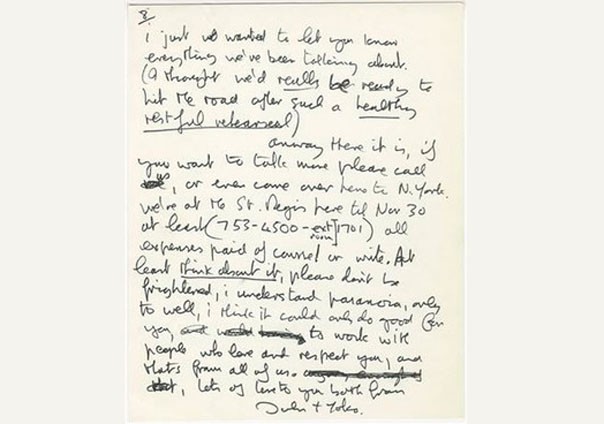 8
i just wanted to let you know
everything we've been talking about.
(I thought we'd really be ready to
hit the road after such a healthy
restful rehearsal)
anyway there it is, if
you want to talk more please call
us, or even come over here to N. York.
we're at the St. Regis here til Nov 30
at least (753-4500-ext/room 1701) all
expenses paid of course! or write. At
least think about it, please don't be
frightened, i understand paranoia, only
to well, i think it could only do good for
you, to work with
people who love and respect you, and
that's from all of us.
lots of love to you both from
John + Yoko.